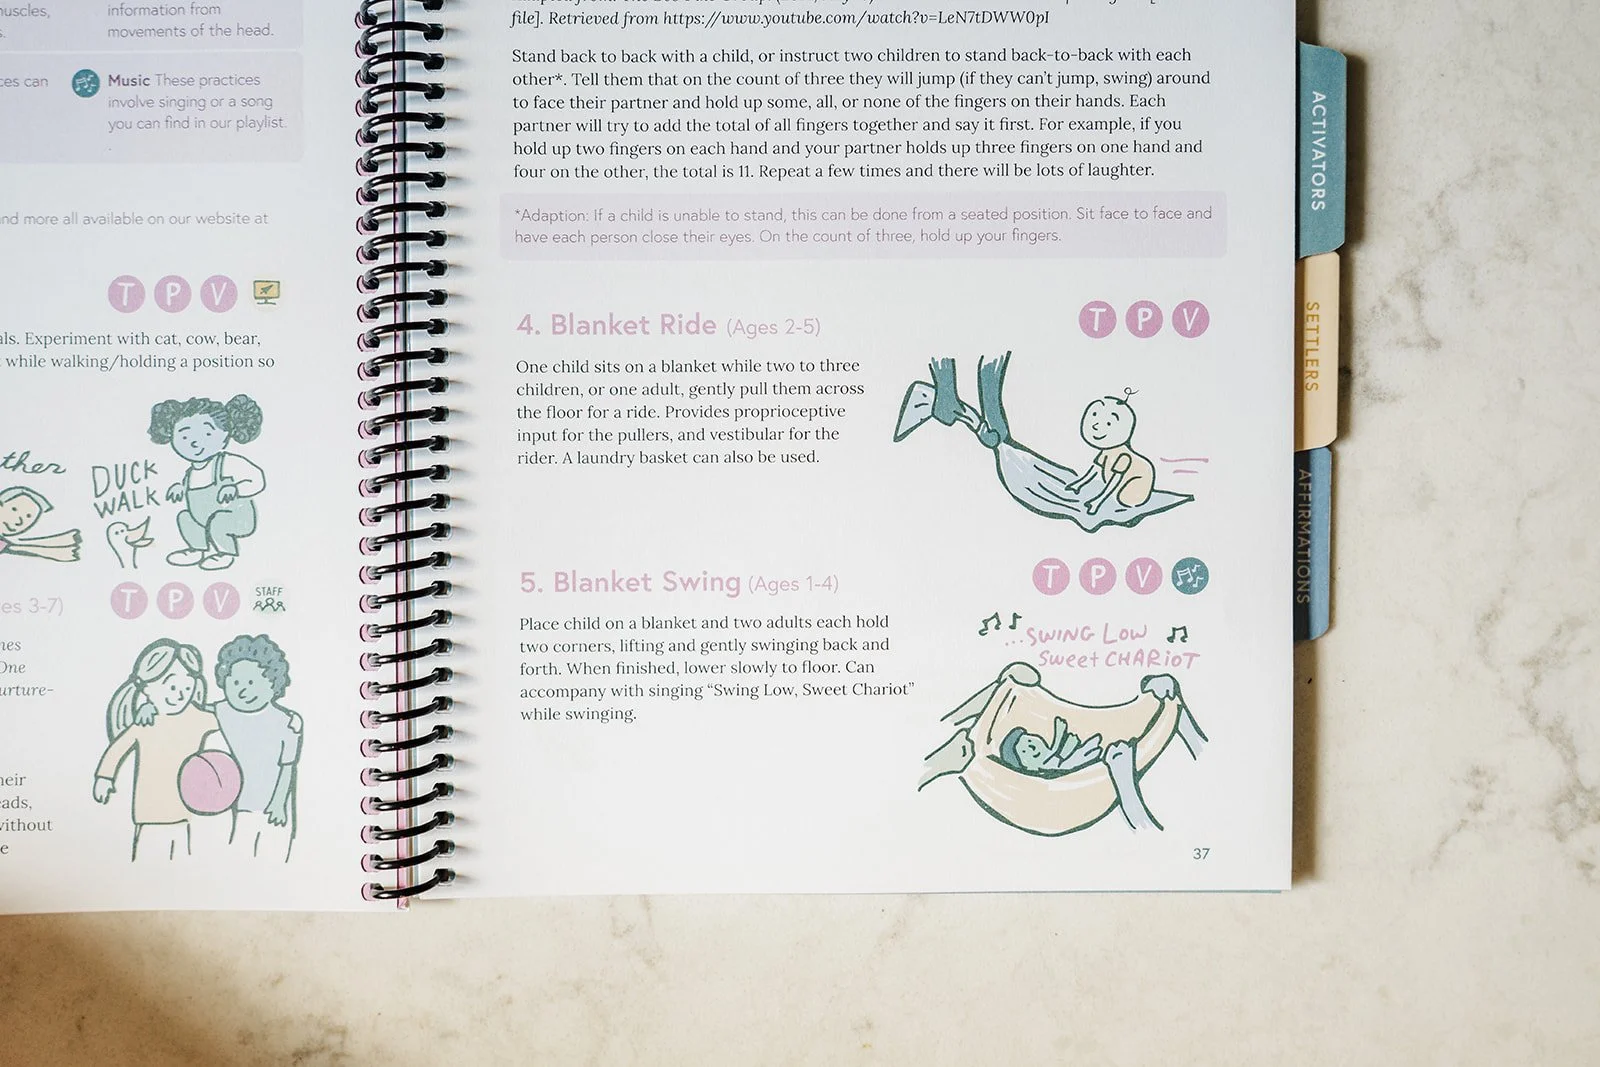 uscles,
information from
movements of the head.
ces can
Music These practices
involve singing or a song
you can find in our playlist.
nd more all available on our website at
T P V
als. Experiment with cat, cow, bear,
while walking/holding a position so
ther
DUCK
WALK
T P V
STAFF
es 3-7)
nes
One
urture-
heir
ads,
without
e
file]. Retrieved from https://www.youtube.com/watch?v=LeN7tDWW0pI
Stand back to back with a child, or instruct two children to stand back-to-back with each
other*. Tell them that on the count of three they will jump (if they can't jump, swing) around
to face their partner and hold up some, all, or none of the fingers on their hands. Each
partner will try to add the total of all fingers together and say it first. For example, if you
hold up two fingers on each hand and your partner holds up three fingers on one hand and
four on the other, the total is 11. Repeat a few times and there will be lots of laughter.
*Adaption: If a child is unable to stand, this can be done from a seated position. Sit face to face and
have each person close their eyes. On the count of three, hold up your fingers.
4. Blanket Ride (Ages 2-5)
T P V
One child sits on a blanket while two to three
children, or one adult, gently pull them across
the floor for a ride. Provides proprioceptive
input for the pullers, and vestibular for the
rider. A laundry basket can also be used.
5. Blanket Swing (Ages 1-4)
T P V
Place child on a blanket and two adults each hold
two corners, lifting and gently swinging back and
forth. When finished, lower slowly to floor. Can
accompany with singing "Swing Low, Sweet Chariot"
while swinging.
...SWING LOW
Sweet CHARIOT
37
ACTIVATORS
SETTLERS
AFFIRMATIONS